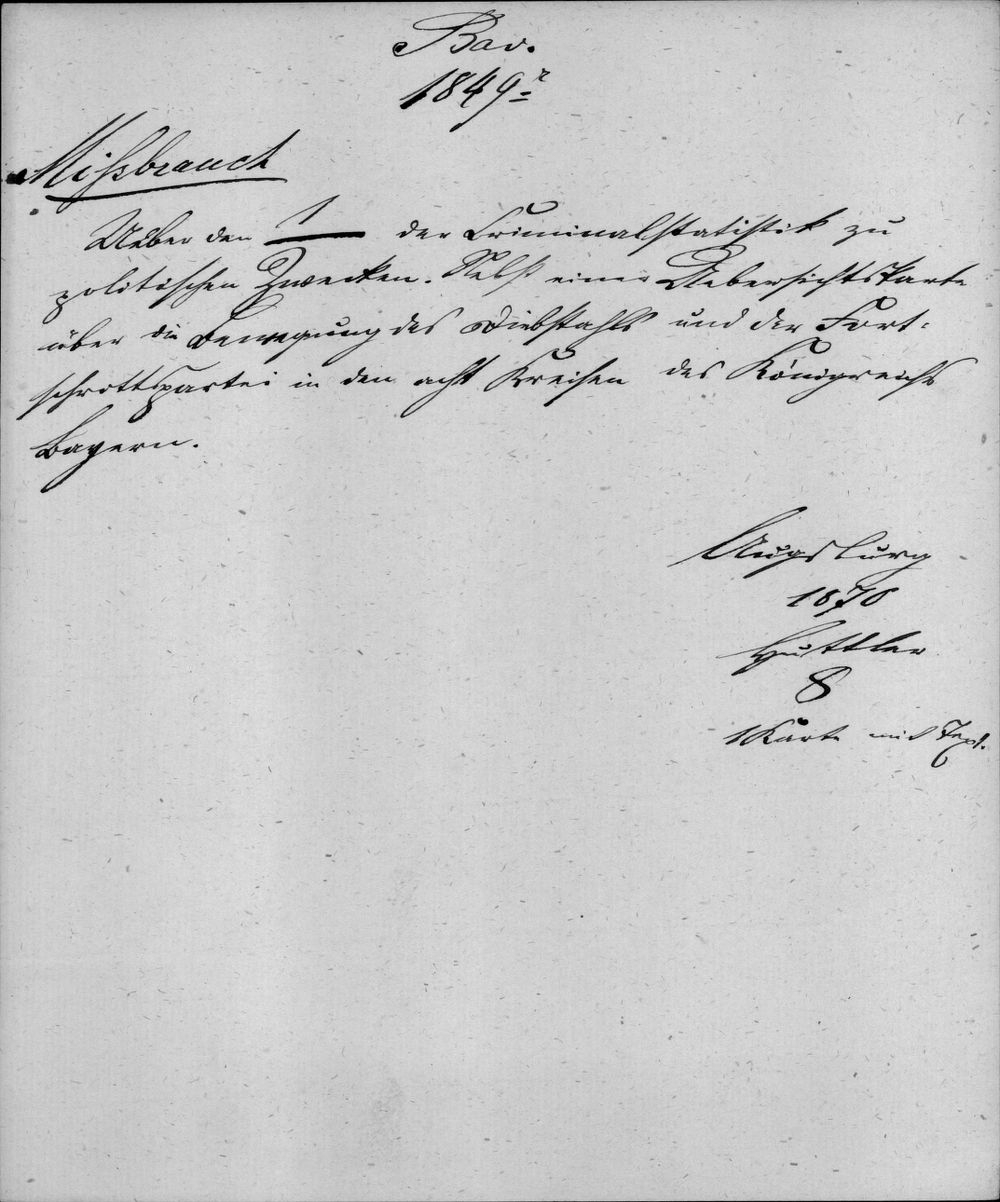 Bav.
1849 r
Missbrauch
Ueber den — der Criminalstatistik zu
politischen Zwecken. Nebst einer Uebersichtskarte
über die Bewegung des Diebstahls und der Fort-
schrittspartei in den acht Kreisen des Königreichs
Bayern.
Augsburg
1870
Huttler
8
1 Karte mit Text.